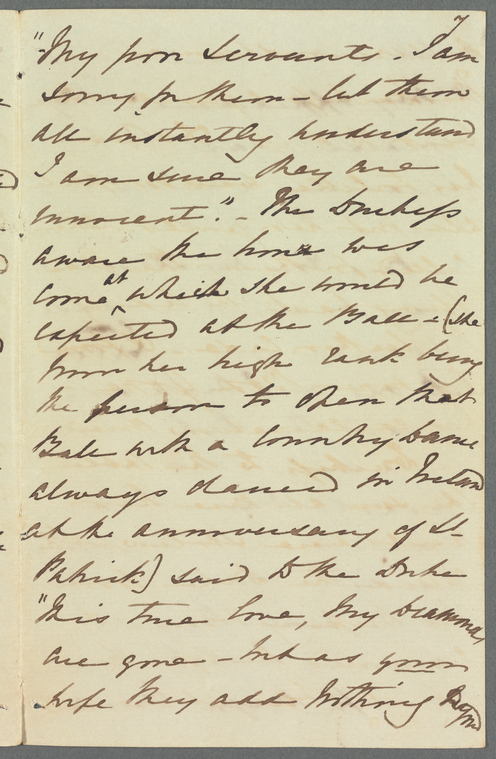 7
"My poor Servants - I am
sorry for them - let them
all instantly understand
I am sure they are
innocent". - The Duchess
aware the hour was
come at which she would be
expected at the Ball - (She
from her high rank being
the person to open that
Ball with a Country Dance
always danced in Ireland
at the anniversary of St
Patrick) said to the Duke
"Tis true love, My Diamonds
are gone - but as your
wife they add Nothing beyond